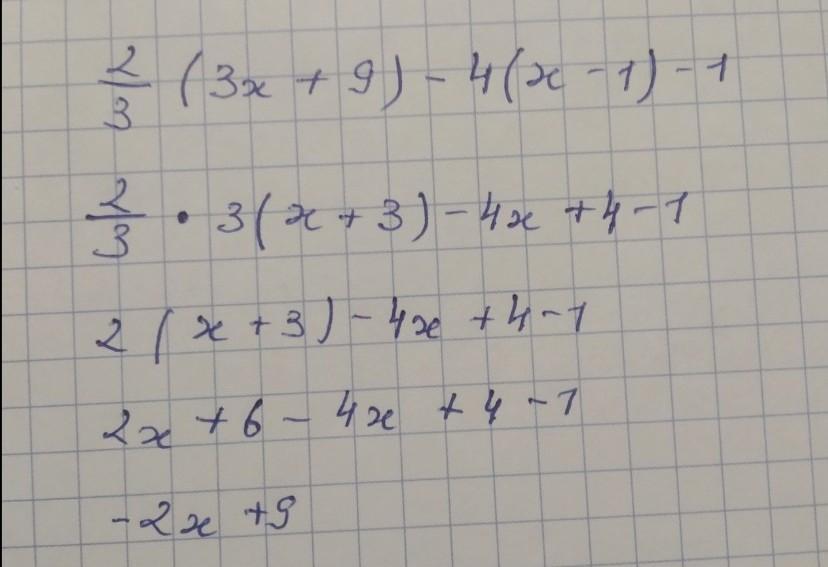 2/3 (3x + 9) - 4(x - 1) - 1
2/3 · 3(x + 3) - 4x + 4 - 1
2(x + 3) - 4x + 4 - 1
2x + 6 - 4x + 4 - 1
-2x + 9